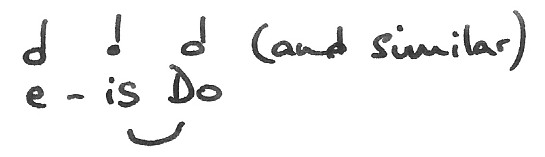 (and similar)
e - is Do